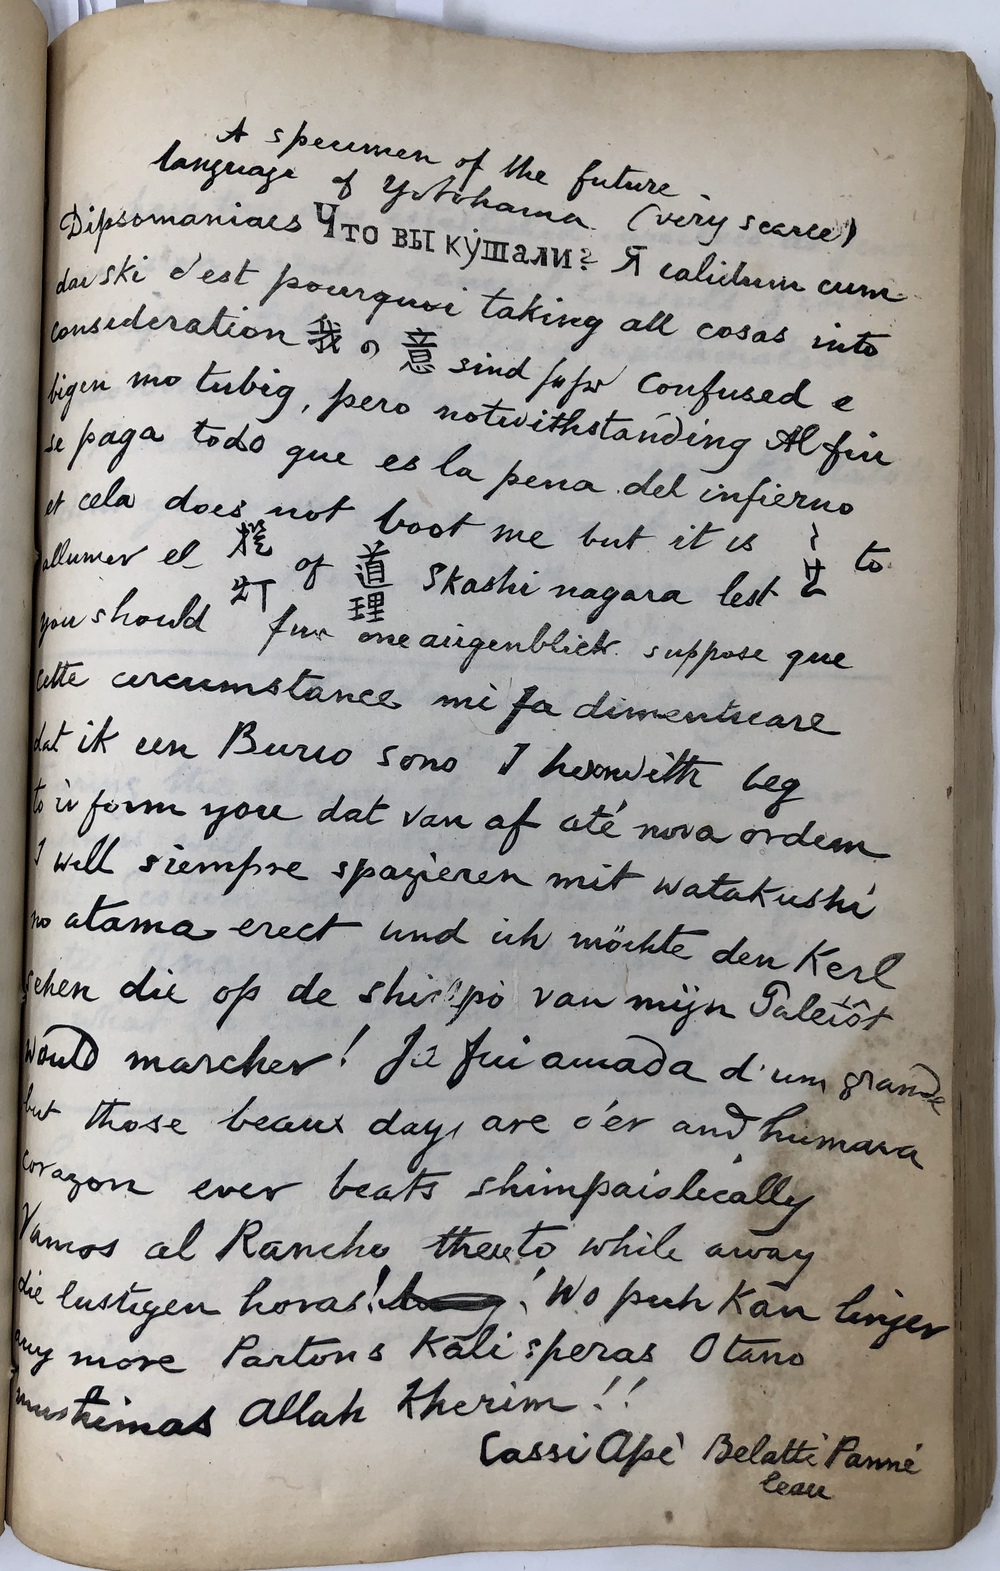 A specimen of the future
language of Yokohama (very scarce)
Dipsomaniacs Что вы кушали? Я calidum cum
davski c'est pourquoi taking all cosas into
consideration 我の意 sind confused e
bigen mo tubig, pero notwithstanding Al fin
se paga todo que es la pena del infierno
et cela does not boot me but it is to
allumer el of 道理 Skashi nagara lest
you should für one augenblick suppose que
cette circumstance mi fa dimenticare
dat ik een Burro sono I herewith beg
to inform you dat van af até nova ordem
I will siempre spazieren mit watakushi
no atama erect und ich möchte den Kerl
sehen die op de shippo van mijn Paletôt
would marcher! Je fui amada d'um grande
but those beaux days are o'er and humana
corazon ever beats shimpaistically
Vamos al Rancho thereto while away
die lustigen horas! Wo puh Kan linger
any more Partons Kali speras Otano
mushimas Allah Kherim!!
Cassi Apè Belatti Panné
leau